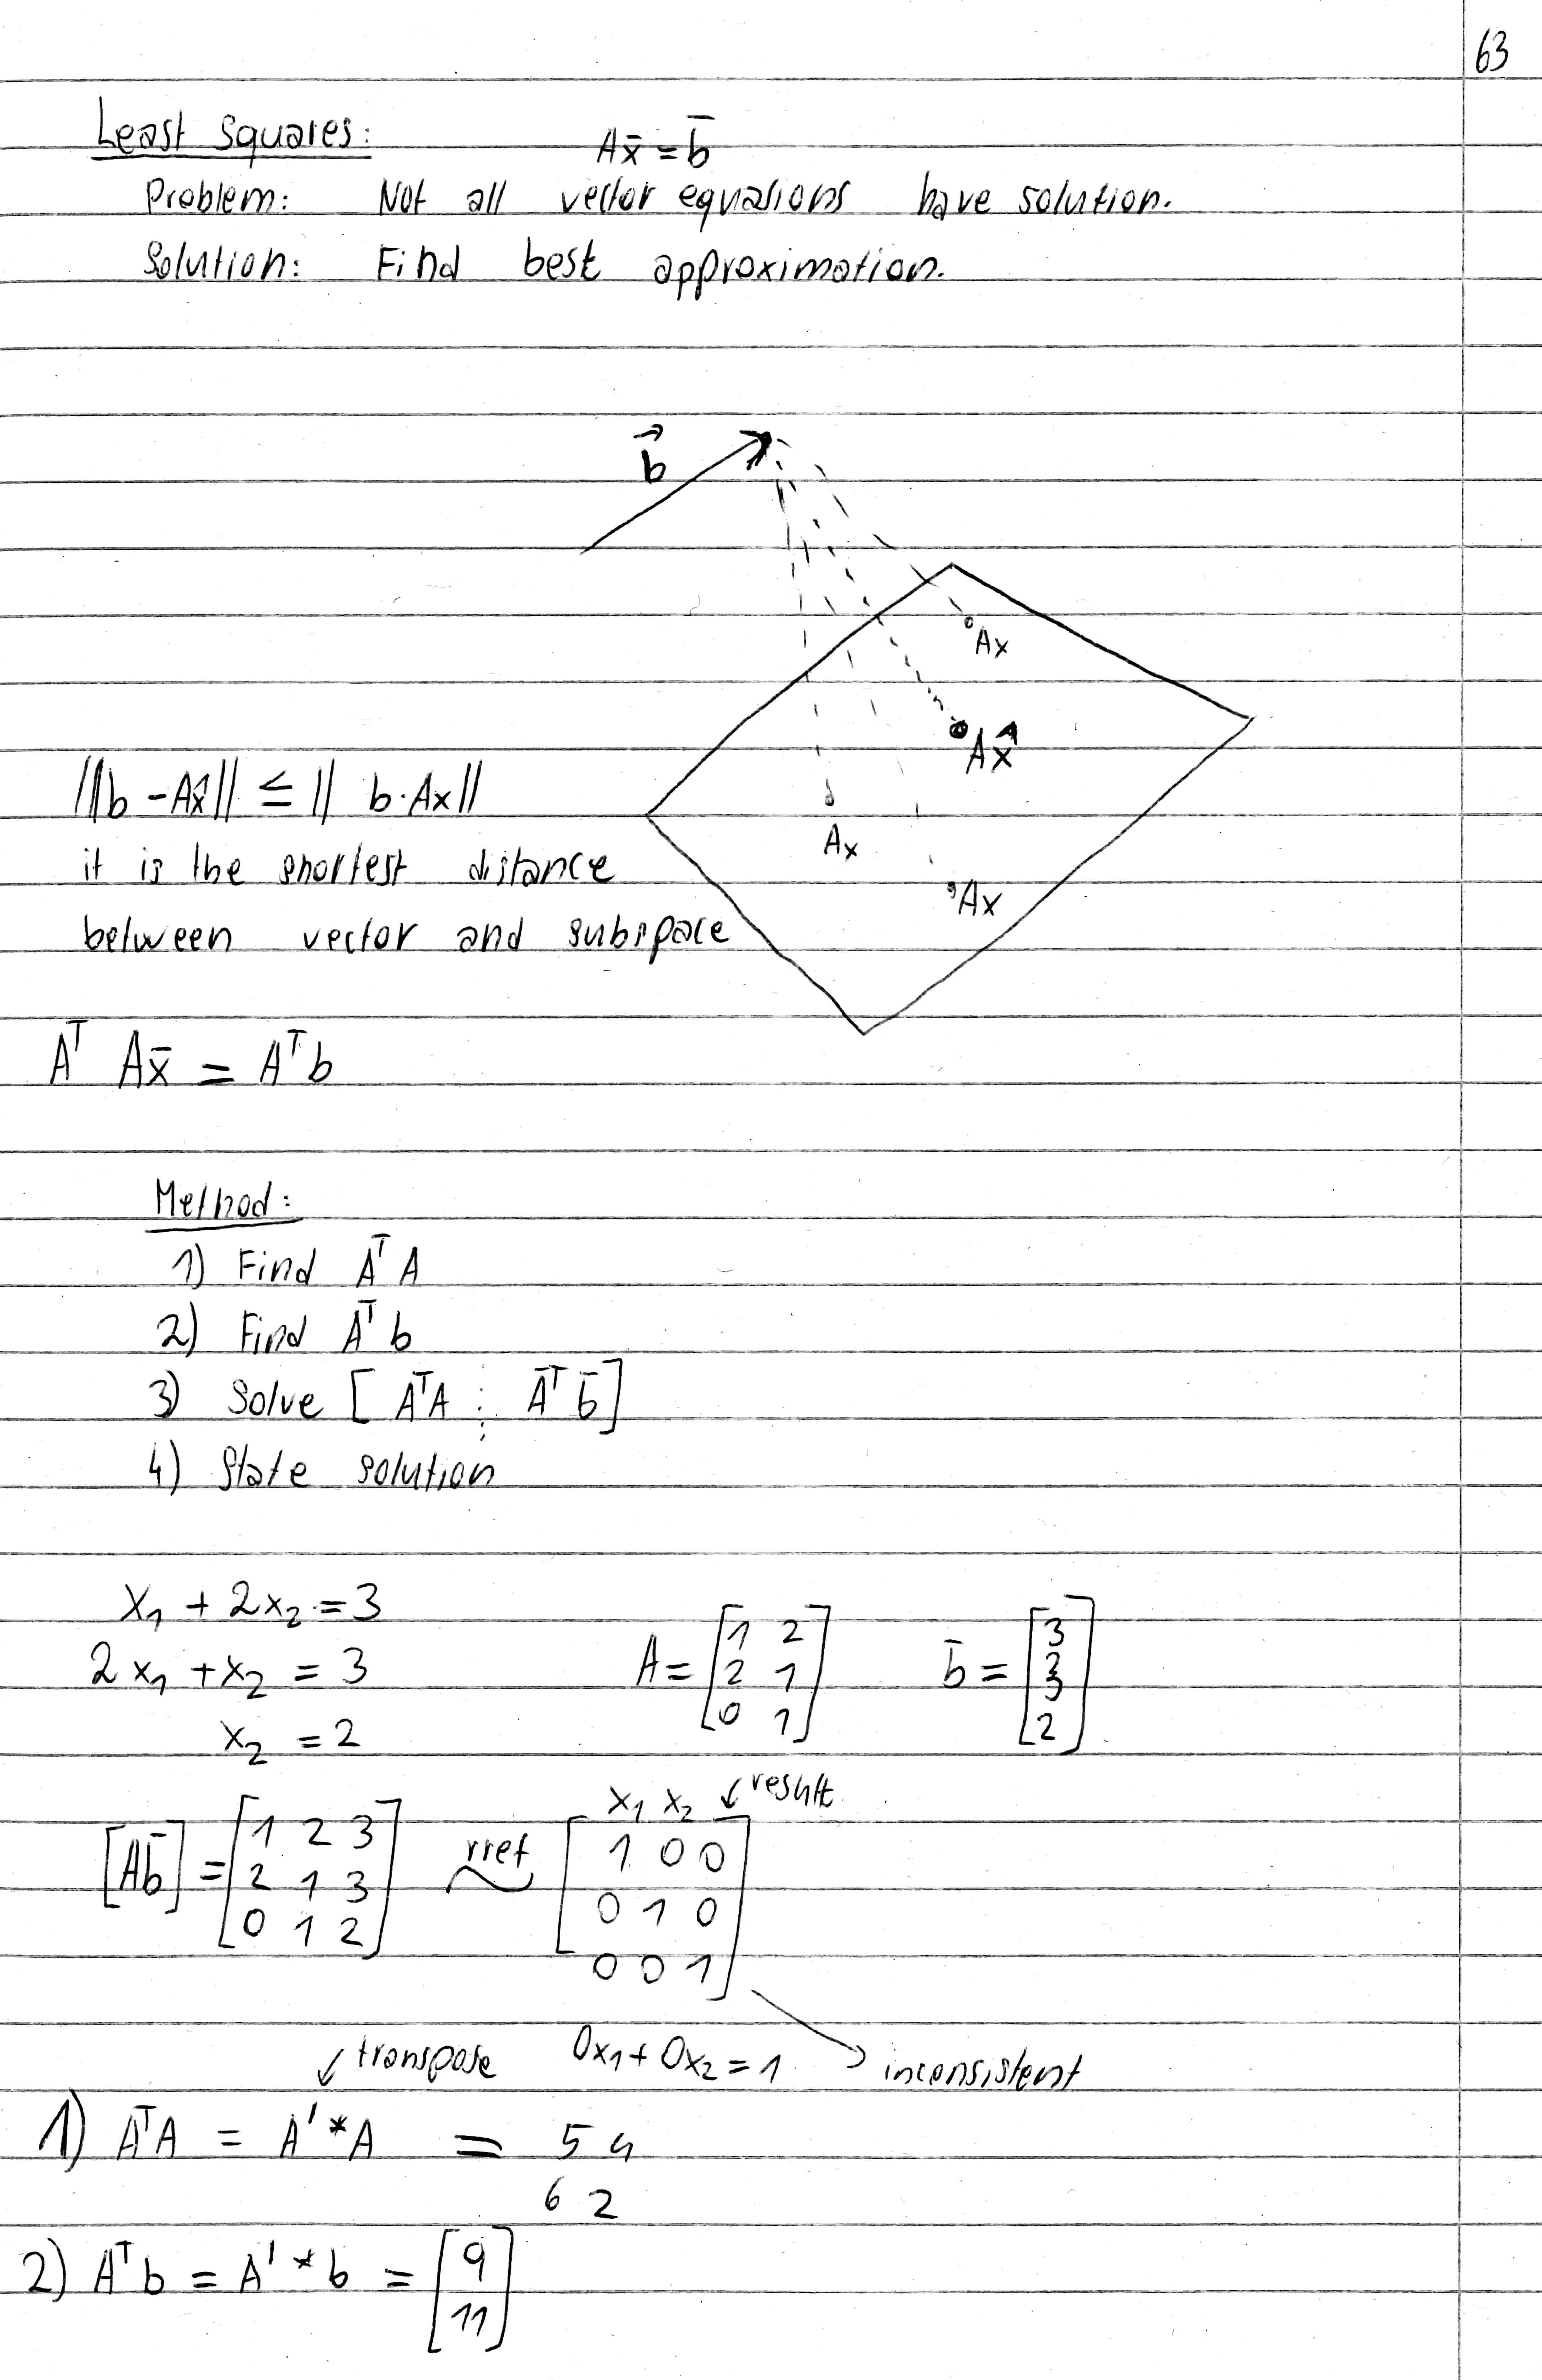 63
Least squares: Ax̄ = b̄
Problem: Not all vector equations have solution.
Solution: Find best approximation.
b⃗
Ax
Ax̂
||b - Ax̂|| ≤ || b · Ax||
Ax
it is the shortest distance
Ax
between vector and subspace
Aᵀ Ax̄ = Aᵀb
Method:
1) Find AᵀA
2) Find Aᵀb
3) Solve [AᵀA ⋮ Aᵀb̄]
4) State solution
x₁ + 2x₂ = 3
2x₁ + x₂ = 3 A = [1 2; 2 1; 0 1] b̄ = [3; 3; 2]
x₂ = 2
x₁ x₂ ↙ result
[Ab̄] = [1 2 3; 2 1 3; 0 1 2] rref ~ [1 0 0; 0 1 0; 0 0 1]
↙ transpose 0x₁ + 0x₂ = 1 → inconsistent
1) AᵀA = A' * A = 5 4
6 2
2) Aᵀb = A' * b = [9; 11]